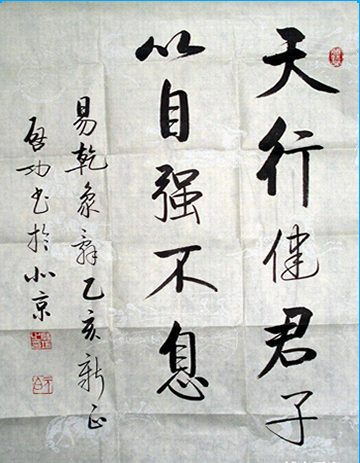 天行健君子
以自强不息
易乾象辞乙亥新正
启功书于北京